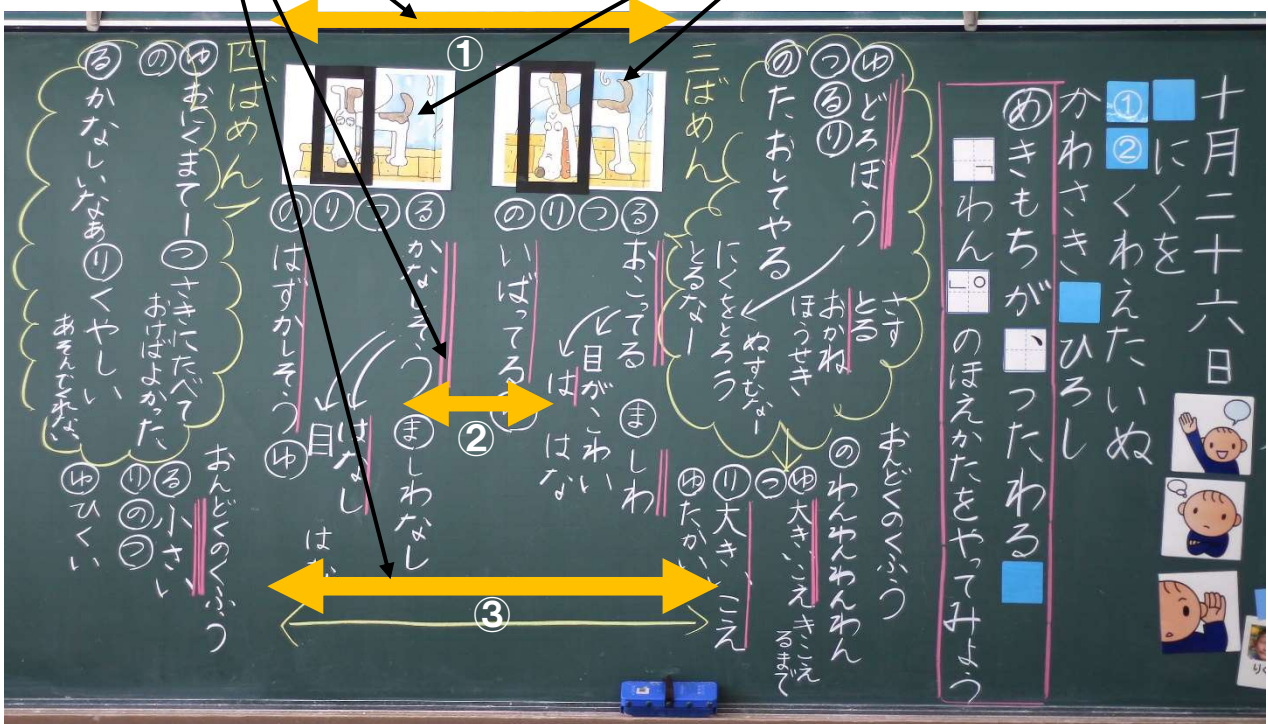 十月二十六日
にくを
①
② くわえたいぬ
かわさき ひろし
め きもちが つたわる
わん のほえかたをやってみよう
ゆ どろぼう
つ る り
の たおしてやる
さす
とる
おかね
ほうせき
ぬすむなー
にくをとろう
とるなー
おんどくのくふう
の わんわんわんわん
ゆ 大きいこえ きこえるまで
つ
り 大きいこえ
ゆ たかい
三ばめん
①
る つ り の
おこってる
ま しわ
目がこわい
は はな
いばってる
②
る つ り の
かなしそう
ま しわなし
はなし
目
は
はずかしそう
ゆ
③
四ばめん
ゆ おにくまてー
の
つ さきにたべておけばよかった、
る かなしいなぁ
り くやしい
あそんでくれない
おんどくのくふう
る 小さい
り の つ
ゆ ひくい
りく